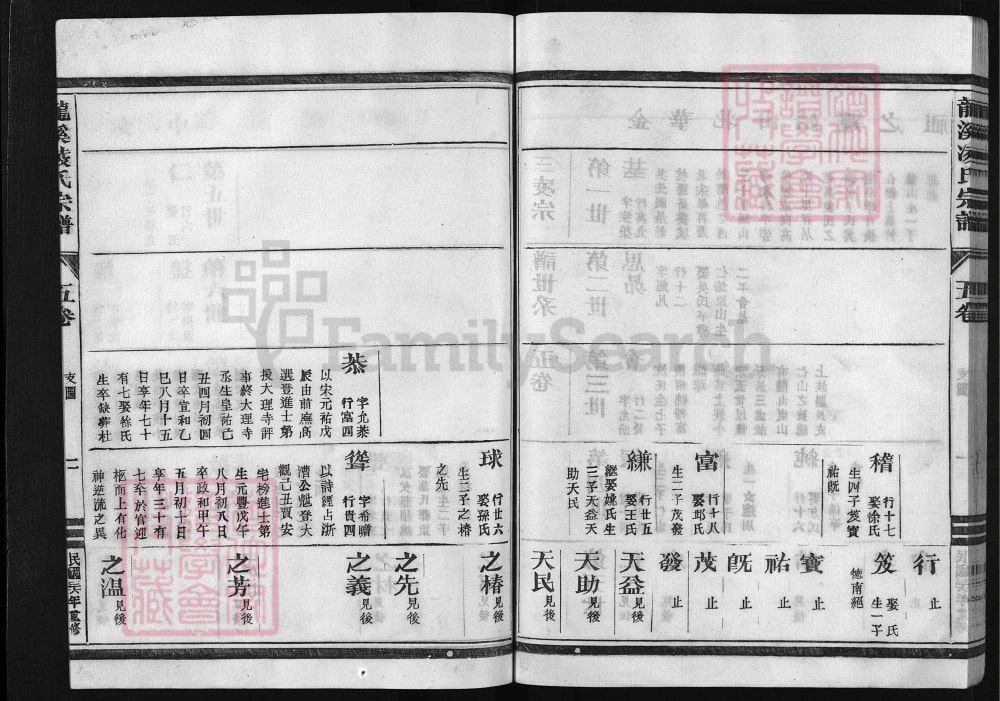 龍溪凌氏宗譜
五卷
支圖
一
民國三六年重修
稽
行十七
娶徐氏
生四子笈寶
祐旣
富
行十八
娶邱氏
生二子茂發
縑
行廿五
娶王氏
繼娶姚氏生
三子天益天
助天民
行
止
笈
娶氏
生一子
德南絕
寶
止
祐
止
旣
止
茂
止
發
止
天益見後
天助見後
天民見後
恭
字允恭
行富四
以宋元祐戊
辰由前廡高
選登進士第
授大理寺評
事終大理寺
丞生皇祐己
丑四月初四
日卒宣和乙
巳八月十五
日享年七十
有七娶徐氏
生卒缺葬杜
球
行廿六
娶孫氏
生二子之椿
之先
聳
字希瞻
行貴四
以詩經占浙
漕公魁登大
觀己丑賈安
宅榜進士第
生元豐戊午
八月初八日
卒政和甲午
五月初十日
享年三十有
七卒於官迎
柩而上有化
神逆流之異
之椿見後
之先見後
之義見後
之芳見後
之温見後
龍溪凌氏宗譜
五卷
支圖
一
民國三六年重修
FamilySearch